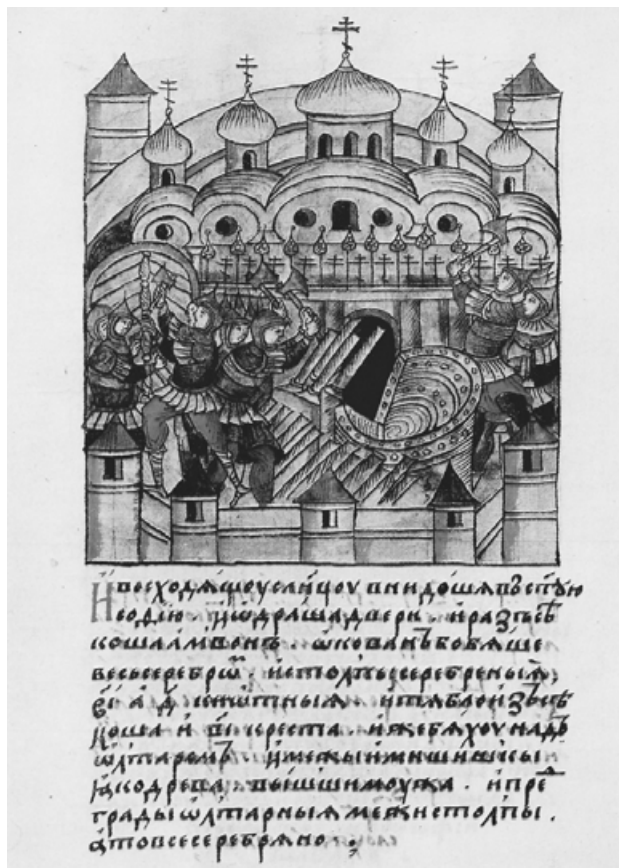 И҆восходѧщоуслн҃цоу внидо́шѧ въст҃ꙋю
со́фїю . и҆ѡ҆дра́ша две́ри . и҆разъсѣ
коша а҆мво́нъ . ѡ҆ко́ванъ бобѧ́ше
весь серебрѡⷨ . и҆столпы̀ серебреныѧ̀ ,
в҃і а҆ д҃ кивѡ́тныѧ . и҆тѧбло̀ и҆зъсѣ
коша и҆ в҃і креста . и҆жебѧ́хоу надъ
ѡ҆лтаремъ . и҆межы̀ и҆́ми ши́шкы
ꙗ҆́кодрева̀ . вы́шшимоу́жа . и҆пре
гра́ды ѡ҆лта́рныѧ межѝ столпы̀ .
а҆товсе серебрѧно .